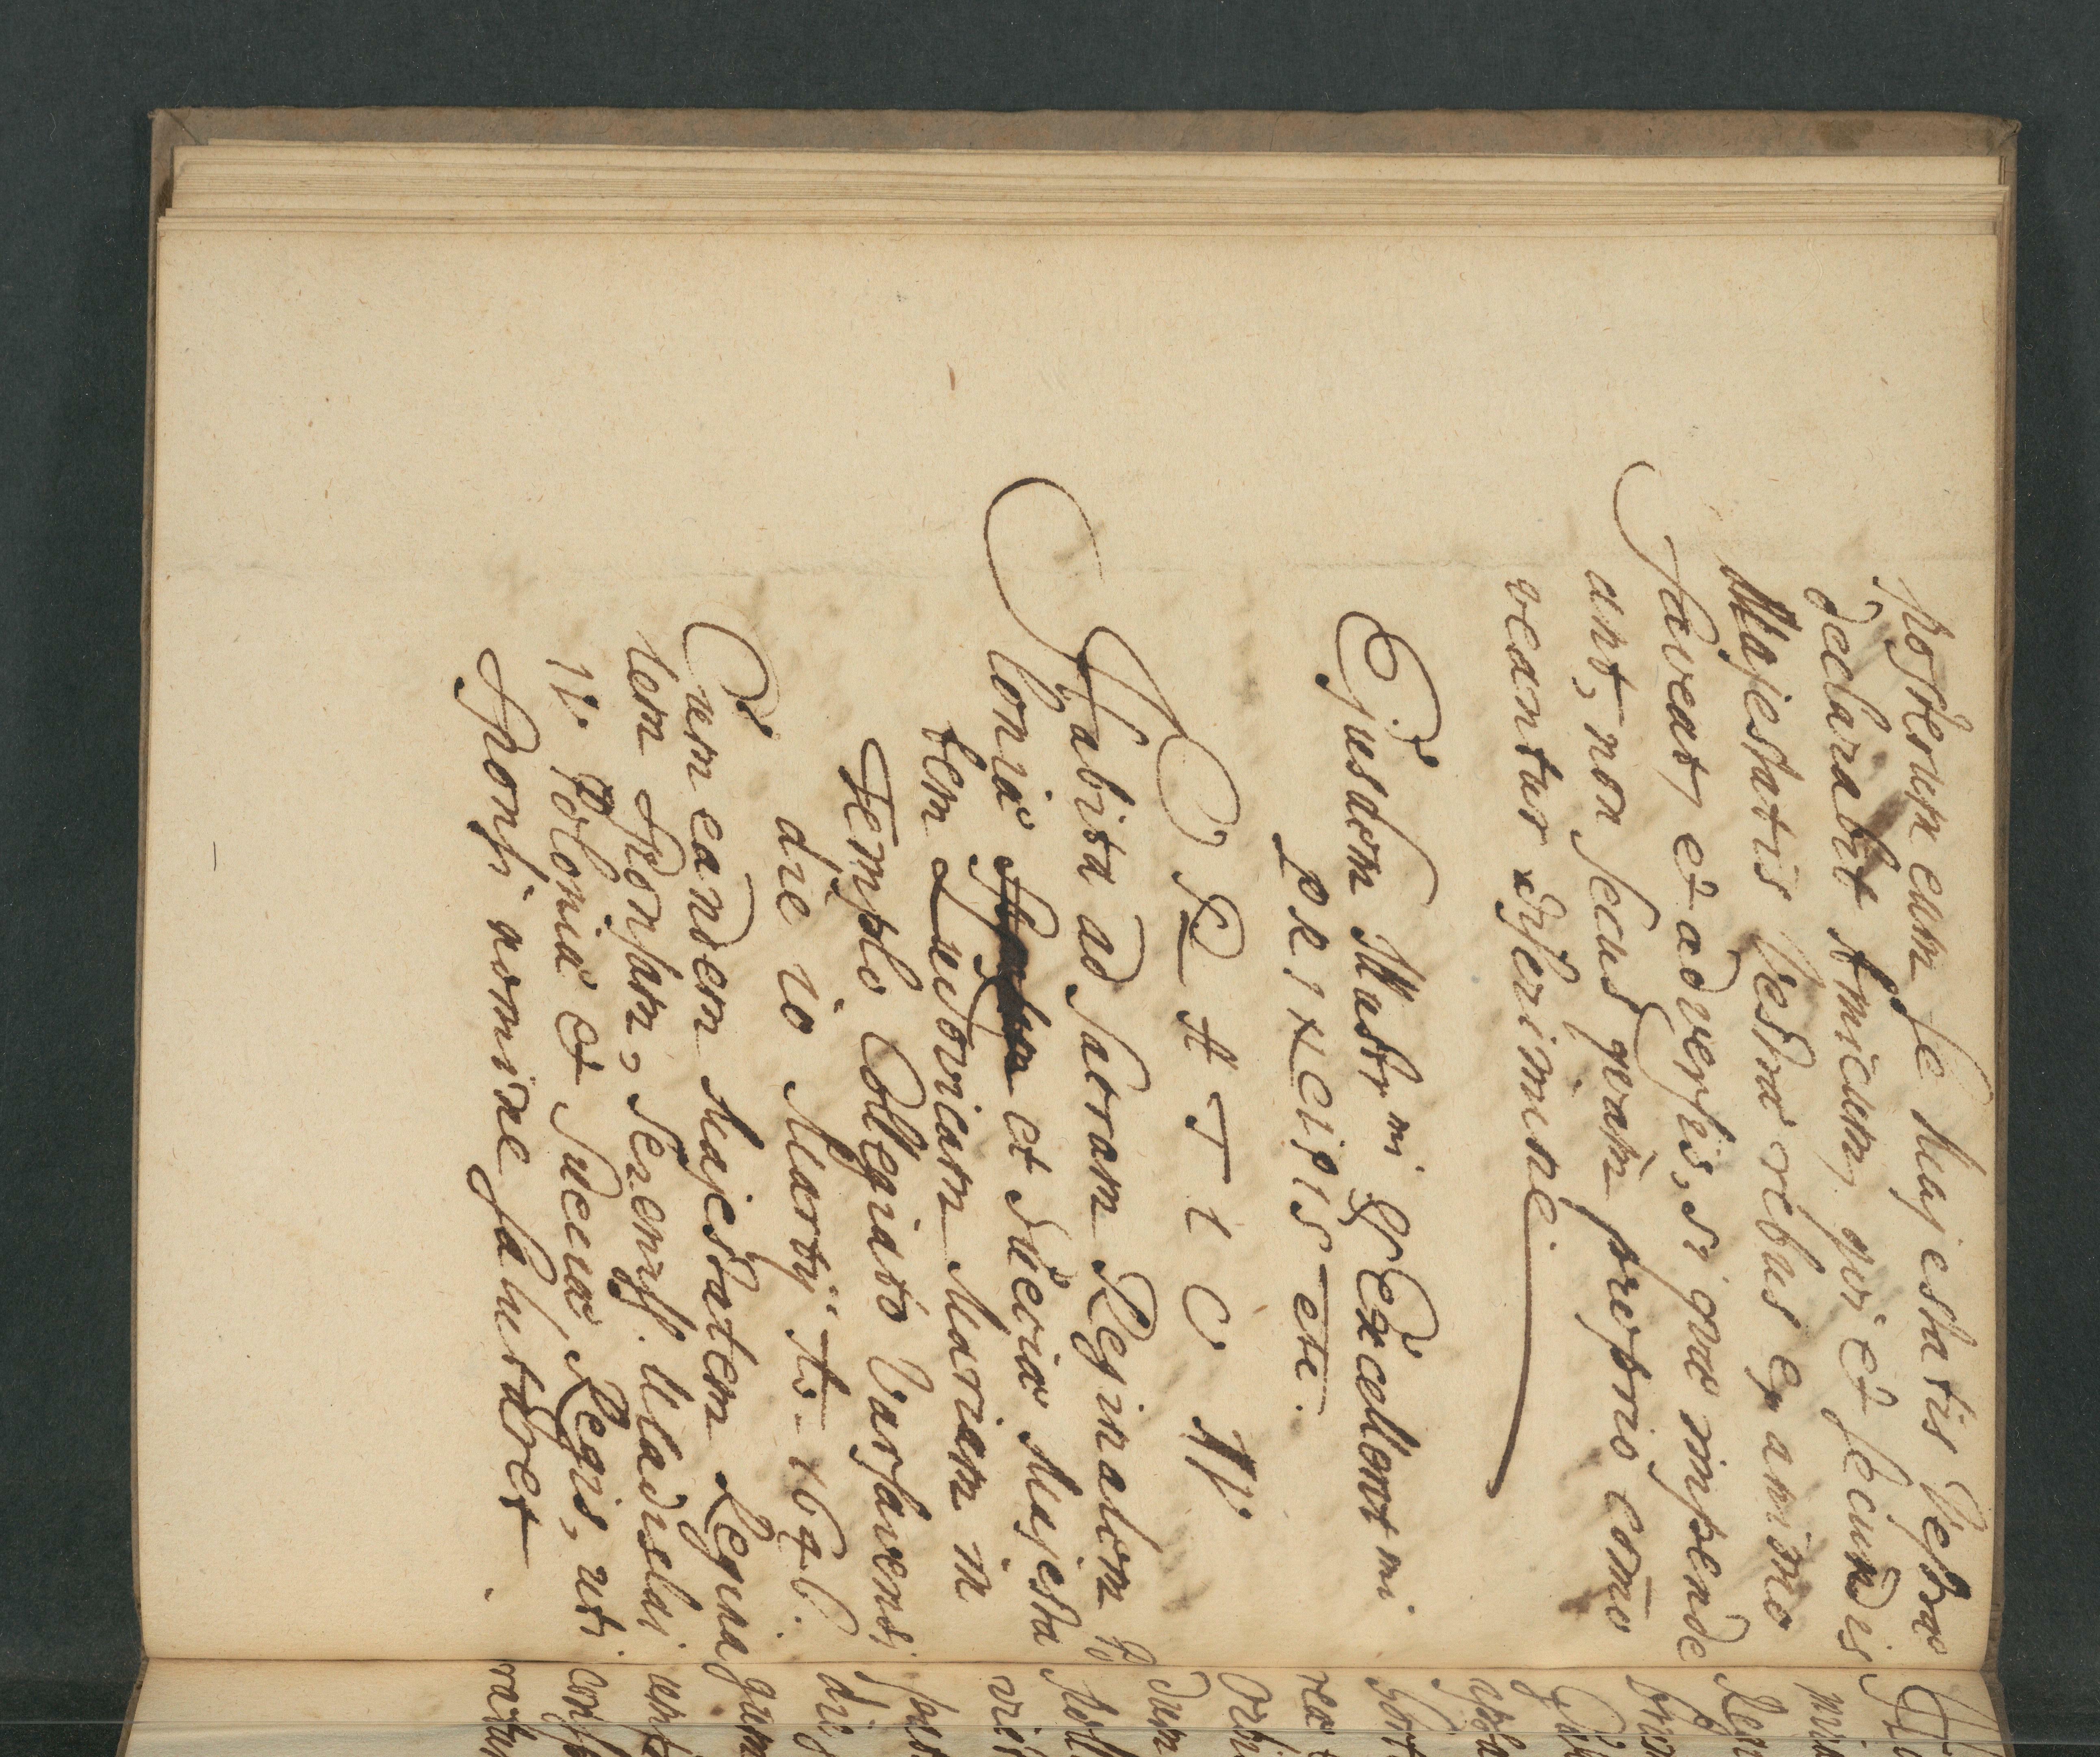 posterum eum se Majestatis Vestræ
declarabit Amicum, qui et secundis
Majestatis Vestræ rebus ex animo
faveat, et adversis, si quæ impende
ant, non secus quàm proprio com̄o
veantur discrimine.
Ejusdem Illustr mi & Excellent mi
PRINCIPIS etc.
ORATIO II.
Habita ad Sacram Reginalem Po
loniæ et Sueciæ Majesta
tem Ludovicam Mariam in
Templo Collegiato Varsaviensi
die 10 Martij Ao 1646.
Cum eandem Majestatem Regina
lem Sponsam, Sereniss. Uladislai
IV. Poloniæ et Sueciæ Regis, uti
Sponsi nomine salutaret.